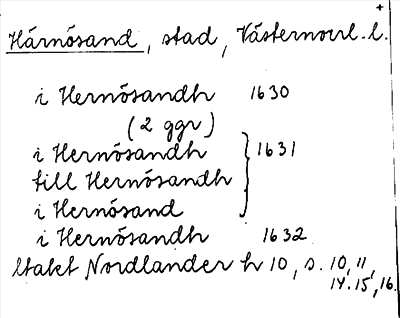 +
Härnösand, stad, Västernorrl. l.
i Hernösandh 1630
(2 ggr)
i Hernösandh } 1631
till Hernösandh
i Hernösand
i Hernösandh 1632
Nordlander h 10, s. 10, 11,
14. 15, 16.